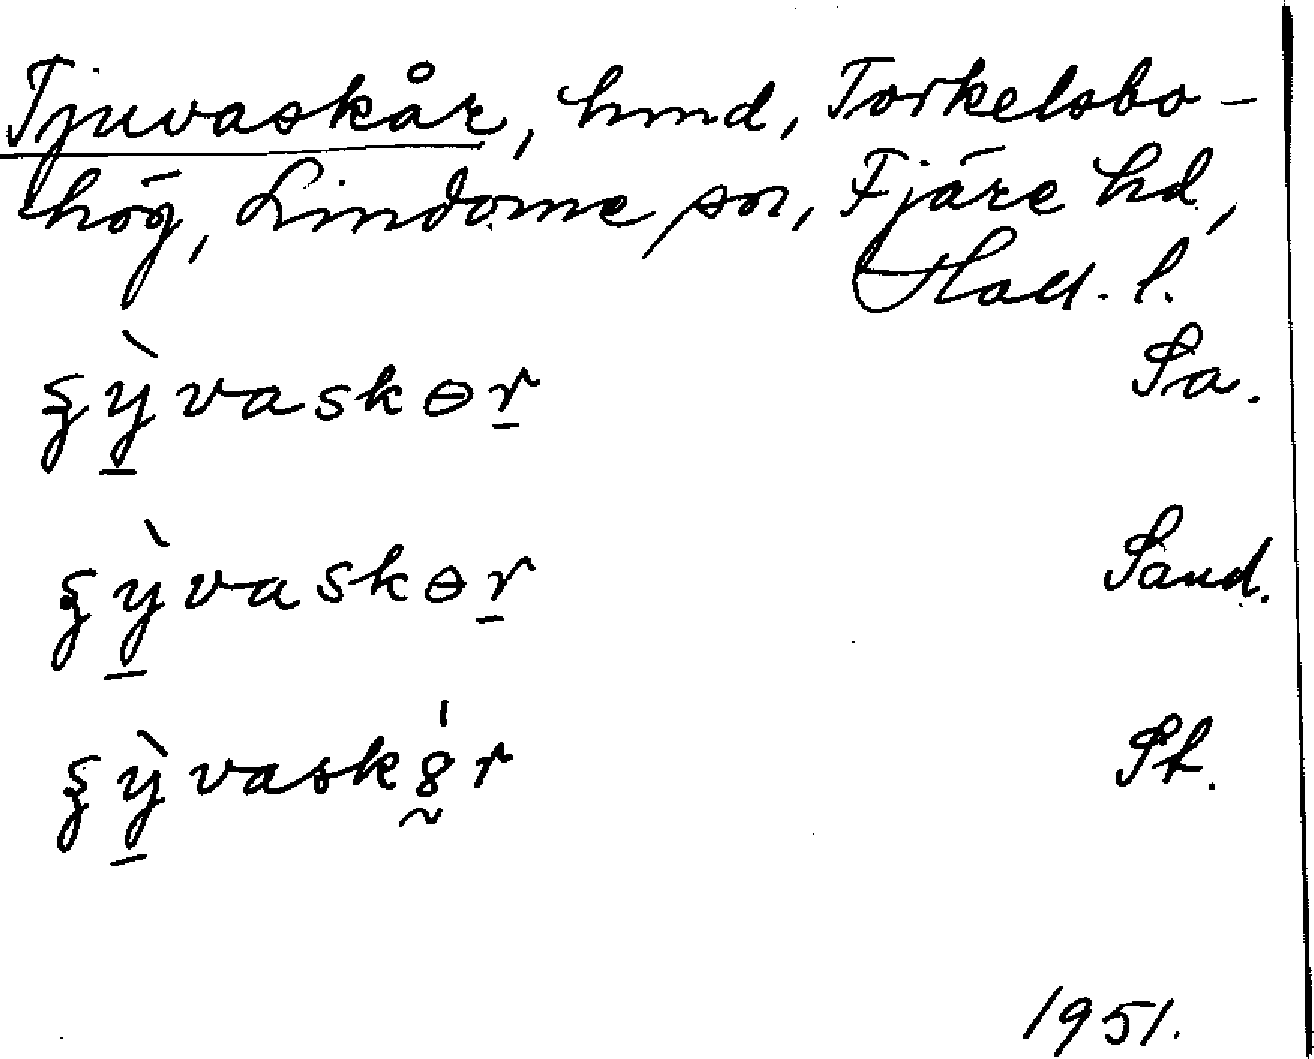 Tjuvaskår, hmd, Torkelsbo-
hög, Lindome sn, Fjäre hd,
Hall. l.
ʂỳ̱vaskɵṟ Sa.
ʂỳ̱vaskɵṟ Sand.
ʂỳ̱vask8̰́r St.
1951.